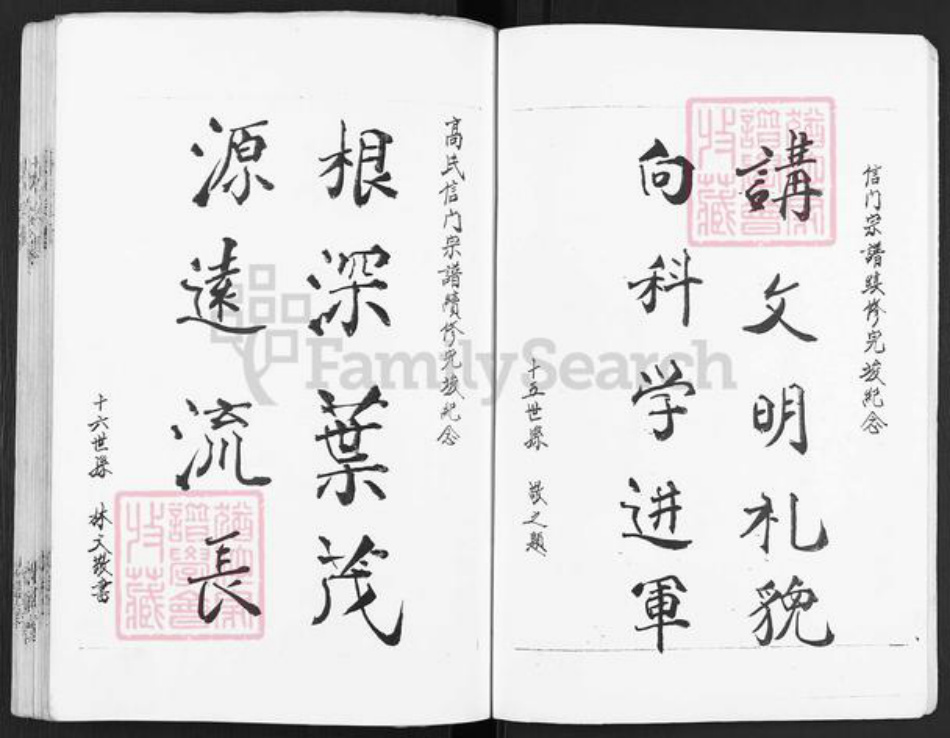 信门宗譜续修完竣紀念
講文明礼貌
向科学进軍
十五世孫 敬之題
高氏信门宗譜續修完竣紀念
根深葉茂
源遠流長
十六世孫 林文敬書
FamilySearch